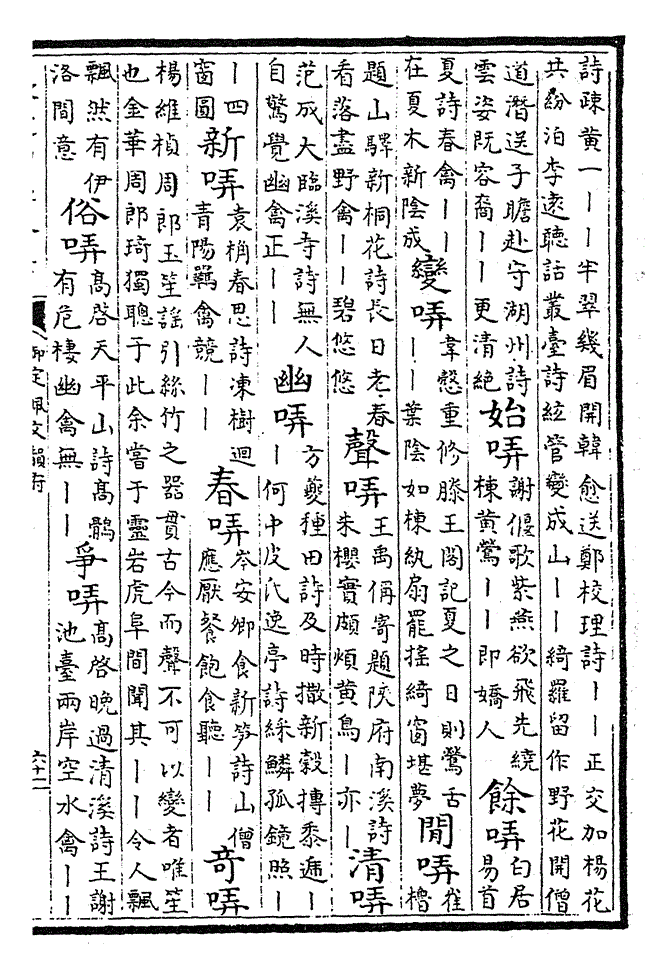 詩疎黃一丨丨半翠幾眉開韓愈送鄭校理詩丨丨正交加楊花
共紛泊李遠聽話叢臺詩絃管變成山丨丨綺羅留作野花開僧
道潛送子瞻赴守湖州詩
雲姿既容裔丨丨更清絕
始哢
謝偃歌紫燕欲飛先繞
棟黃鶯丨丨即嬌人
餘哢
白居
易首
夏詩春禽丨丨
在夏木新陰成
變哢
韋慤重修滕王閣記夏之日則鶯舌
丨丨葉陰如棟紈扇罷搖綺窗堪夢
閒哢
崔
櫓
題山驛新桐花詩長日老春
看落盡野禽丨丨碧悠悠
聲哢
王禹偁寄題陝府南溪詩
朱櫻實頗煩黃鳥丨亦丨
清哢
范成大臨溪寺詩無人
自驚覺幽禽正丨丨
幽哢
方夔種田詩及時撒新穀摶黍遞丨
丨何中皮氏逸亭詩綵鱗孤鏡照丨
丨四
窗圓
新哢
袁桷春思詩凍樹迴
青陽羈禽競丨丨
春哢
岑安卿食新笋詩山僧
應厭餐飽食聽丨丨
奇哢
楊維楨周郎玉笙謠引絲竹之器貫古今而聲不可以變者唯笙
也金華周郎琦獨聰于此余嘗于靈岩虎阜間聞其丨丨令人飄
飄然有伊
洛間意
俗哢
高啓天平山詩高鶻
有危棲幽禽無丨丨
爭哢
高啓晚過清溪詩王謝
池臺兩岸空水禽丨丨
御定佩文韻府
六十二